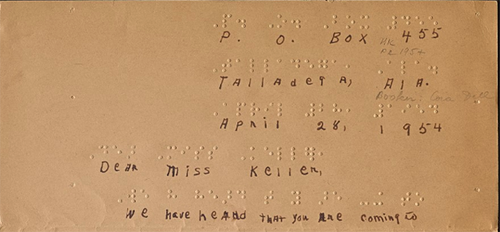 P. O. BOX 455
Talladega, Ala.
April 28, 1954
Dear Miss Keller,
We have heard that you are coming to